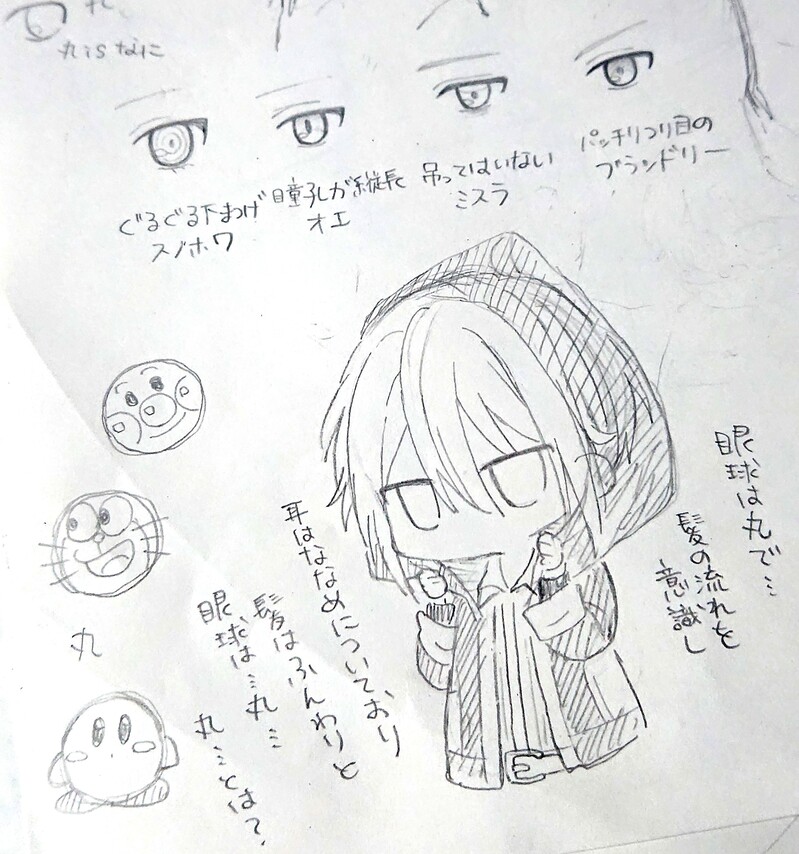 丸 is なに
ぐるぐる下まつげ
スノホワ
瞳孔が縦長
オエ
吊ってはいない
ミスラ
パッチリつり目の
ブランドリー
眼球は丸で…
髪の流れを
意識し
耳はななめについており
髪はふんわりと
眼球は…丸…
丸…とは?
丸